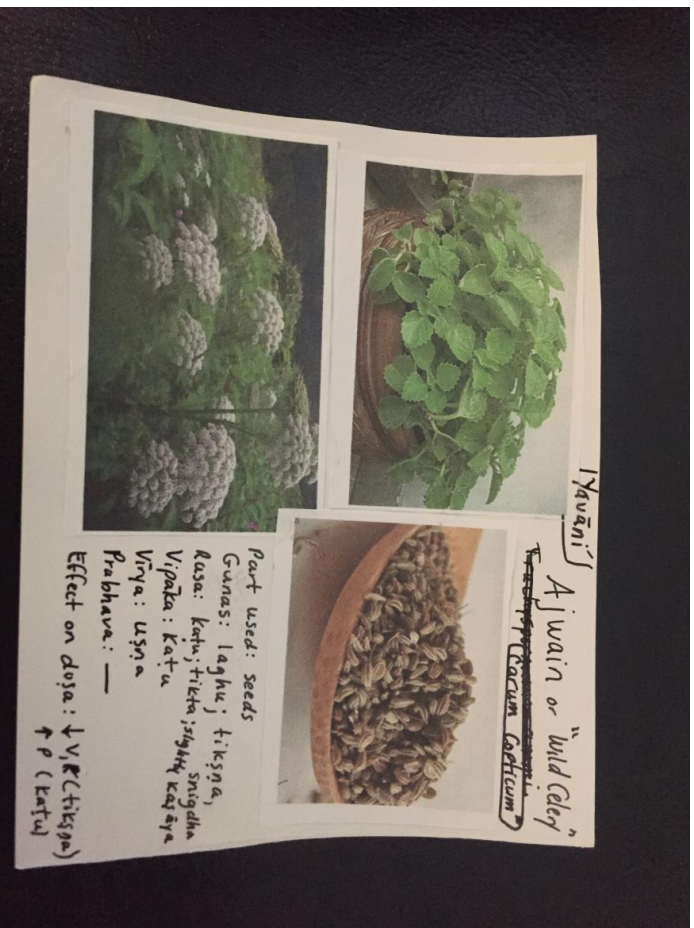 Yavānī
Ajwain or "Wild Celery"
Carum Copticum"
Part used: seeds
Gunas: laghu; tikṣṇa, snigdha
Rasa: kaṭu; tikta; slightly kaṣāya
Vipāka: kaṭu
Vīrya: uṣna
Prabhava: —
Effect on doṣa: ↓ V, K (tikṣṇa)
↑ P (kaṭu)